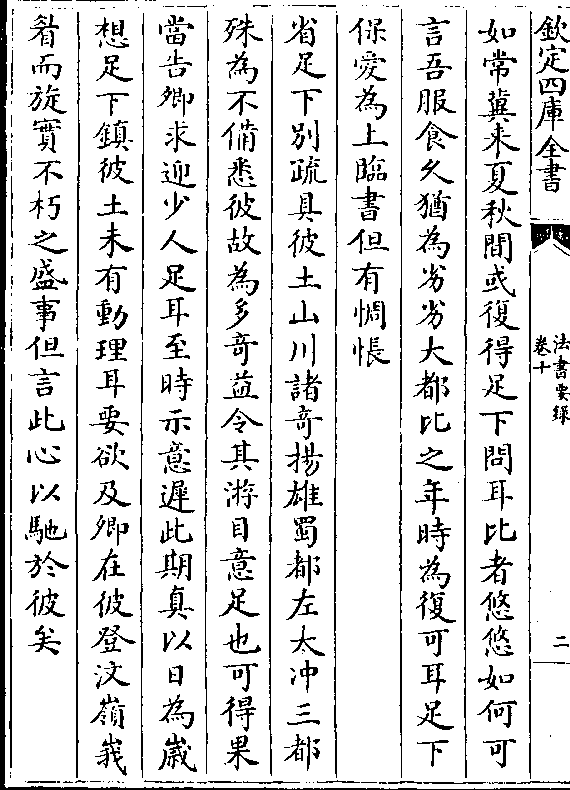 欽定四庫全書
法書要録
卷十
二
如常冀来夏秋間或復得足下問耳比者悠悠如何可
言吾服食久猶為劣劣大都比之年時為復可耳足下
保愛為上臨書但有惆悵
省足下别疏具彼土山川諸竒揚雄蜀都左太冲三都
殊為不備悉彼故為多竒益令其游目意足也可得果
當告卿求迎少人足耳至時示意遲此期真以日為嵗
想足下鎮彼土未有動理耳要欲及卿在彼登汶嶺峩
眉而旋實不朽之盛事但言此心以馳於彼矣